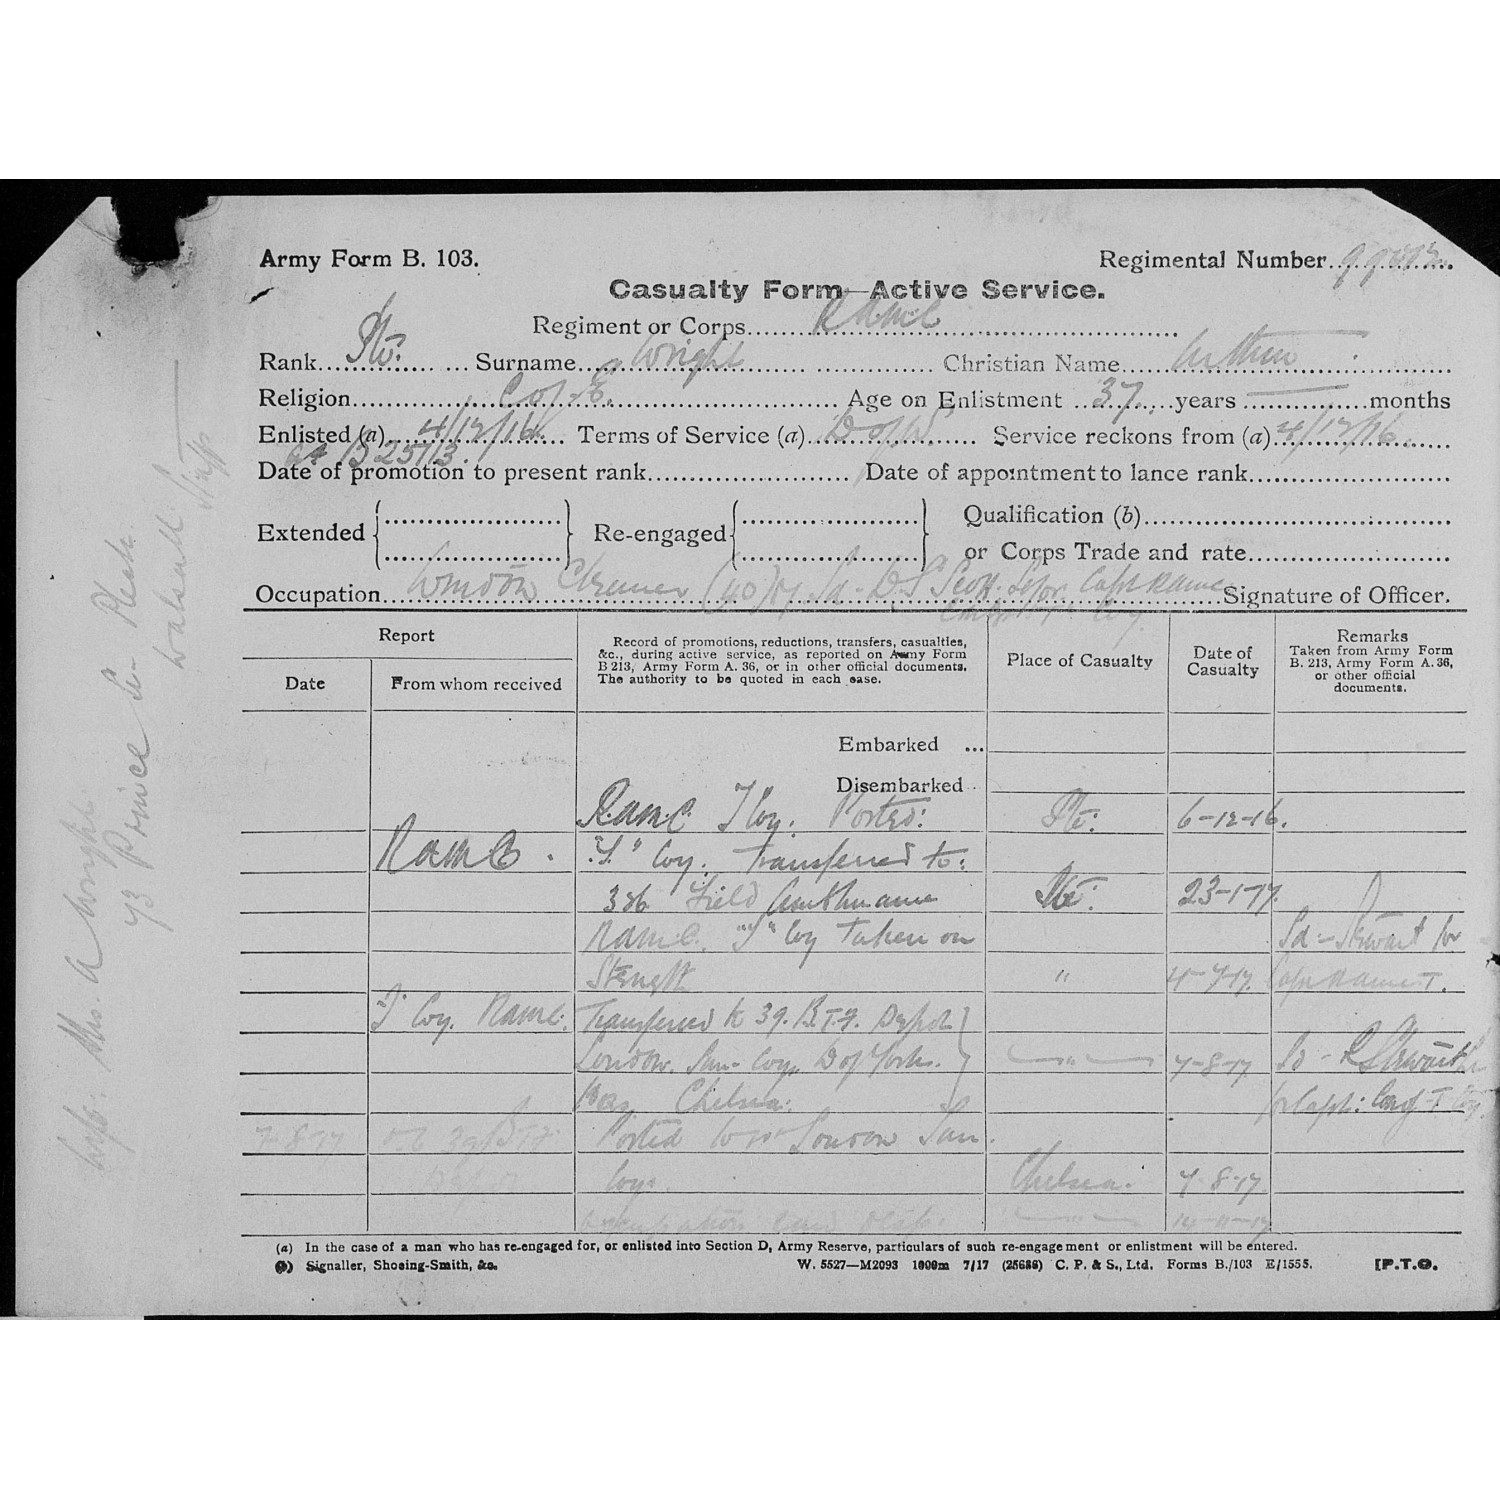 Army Form B. 103.
Regimental Number
Casualty Form—Active Service.
Regiment or Corps R.A.M.C
Rank Pte. Surname Wright Christian Name Arthur
Religion C of E. Age on Enlistment 37 years — months
Enlisted (a) 4/12/16 Terms of Service (a) D of W Service reckons from (a) 4/12/16
Date of promotion to present rank Date of appointment to lance rank
Extended Re-engaged Qualification (b)
or Corps Trade and rate
Occupation Window Cleaner (40) Sd - Capt RAMC Signature of Officer.
Report
Date
From whom received
Record of promotions, reductions, transfers, casualties, &c., during active service, as reported on Army Form B 213, Army Form A. 36, or in other official documents. The authority to be quoted in each case.
Place of Casualty
Date of Casualty
Remarks
Taken from Army Form B. 213, Army Form A. 36, or other official documents.
Embarked ...
Disembarked
R.A.M.C. T Coy. Posted: Pte: 6-12-16.
RAMC. "T" Coy. Transferred to:
386 Field Ambulance Pte: 23-1-17.
RAM.C. "T" Coy taken on Sd:- Stewart for
Strength " 4-7-17. Capt RAMC T.
"T" Coy. RAMC. Transferred to 39. B.T.F. Depot
London. San. Coy. D of Yorks. — " — 7-8-17 Sd - R Stewart
Chelsea: for Capt: T Coy.
7-8-17 Posted to London San.
Coy. Chelsea. 7-8-17
(a) In the case of a man who has re-engaged for, or enlisted into Section D, Army Reserve, particulars of such re-engagement or enlistment will be entered.
(b) Signaller, Shoeing-Smith, &c.
W. 5527—M2093 1000m 7/17 (25686) C. P. & S., Ltd. Forms B./103 E/1555.
[P.T.O.
Wife: Mrs. A Wright
73 Prince St. Pleck.
Walsall. Staffs